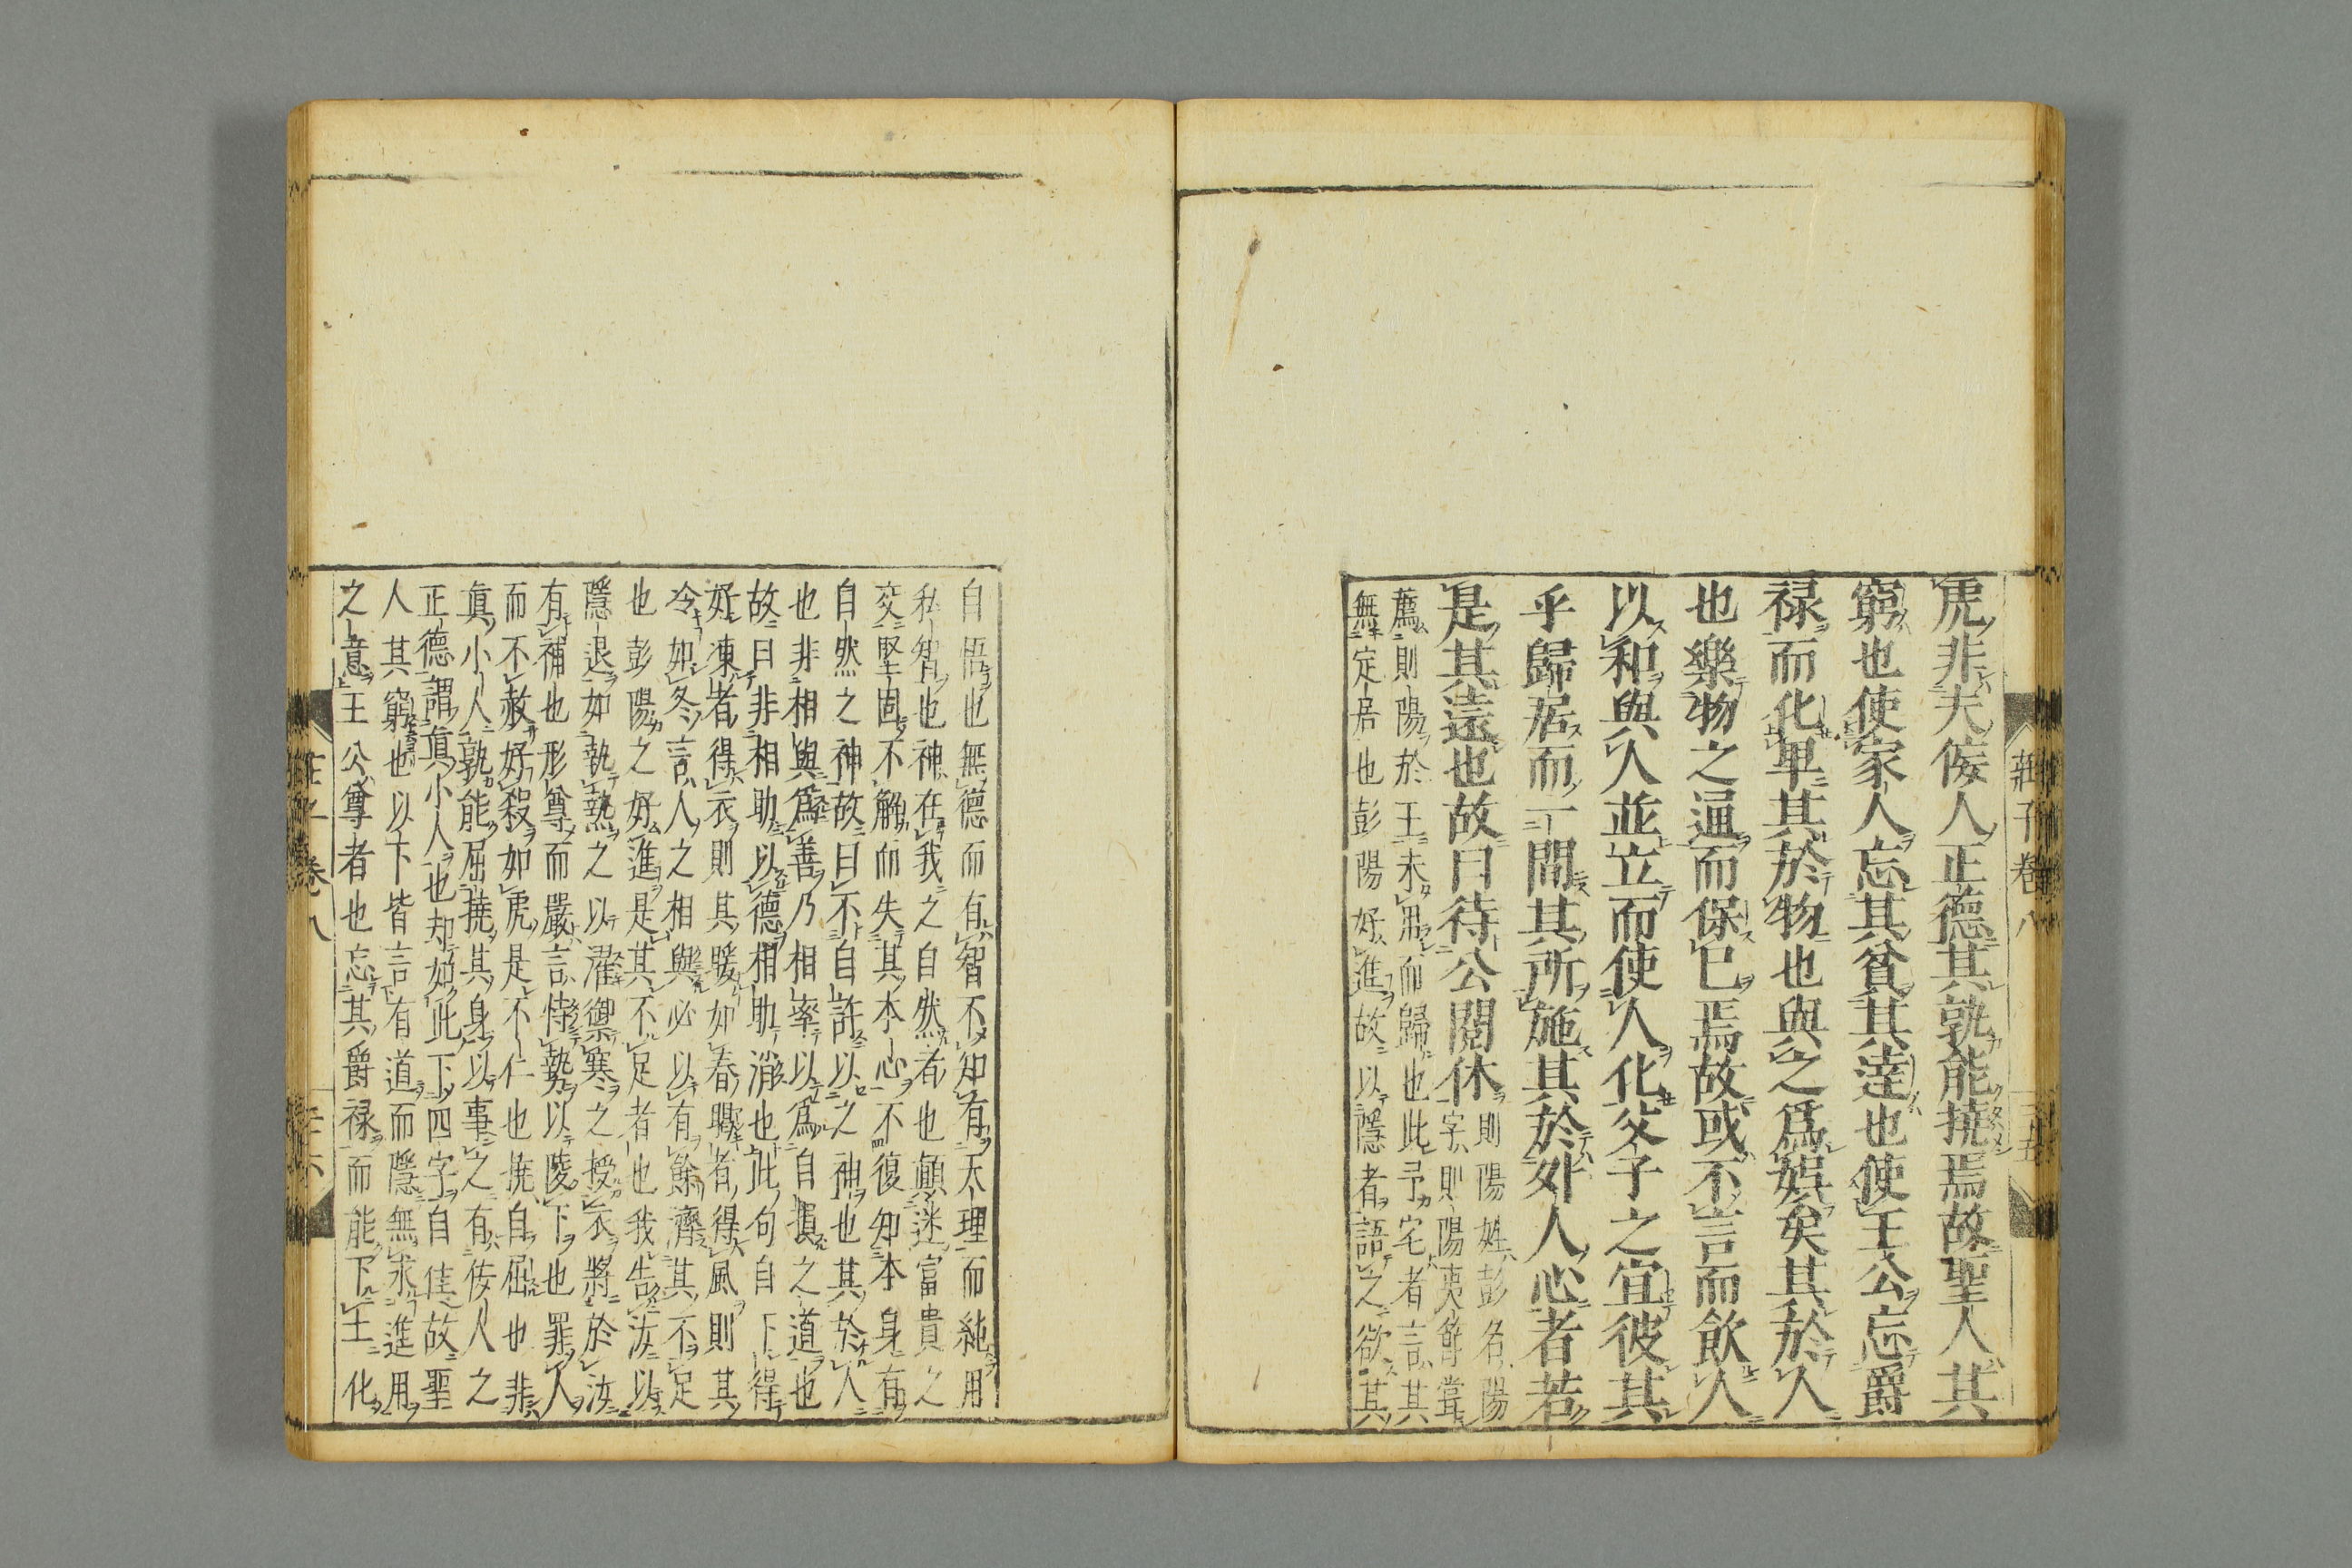 虎非夫佞人正德其孰能撓焉故聖人其
窮也使家人忘其貧其達也使王公忘爵
禄而化卑其於物也與之爲娯矣其於人
也樂物之通而保已焉故或不言而飮人
以和與人並立而使人化父子之宜彼其
乎歸居而一間其所施其於外人心者若
是其遠也故曰待公閱休
則陽姓彭名陽
字則陽夷節甞
薦則陽於王未用而歸也此予宅者言其
無定居也彭陽好進故以隱者語之欲其
莊子卷八
三五
自悟也無德而有智不知有天理而純用
私智也神在我之自然者也顚迷富貴之
交堅固不解而失其本心不復知本身有
自然之神故曰不自許以之神也其於人
也非相與爲善乃相率以爲自損之道也
故曰非相助以德相助消也此句自下得
好凍者得衣則其暖如春暍者得風則其
冷如冬言人之相與必以有餘濟其不足
也彭陽之好進是其不足者也我告汝以
隱退如執熱之以濯禦寒之授衣將於汝
有補也形尊而嚴言恃勢以陵下也罪人
而不赦好殺如虎是不仁也撓自屈也非
眞小人孰能屈撓其身以事之有佞人之
正德謂眞小人也却如此下四字自佳故聖
人其窮也以下皆言有道而隱無求進用
之意王公尊者也忘其爵禄而能下王化
莊子卷八
三六